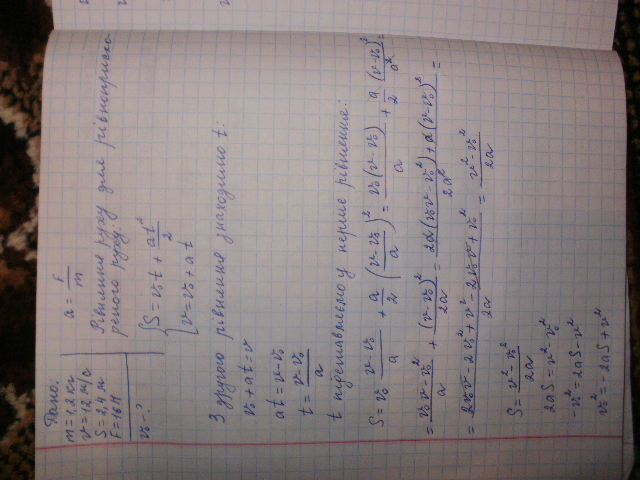 Дано:
m = 1,2 кг
v = 12 м/с
S = 2,4 м
F = 16 Н
v₀ - ?
a = F/m
Рівняння руху для рівноприско-
реного руху:
{ S = v₀t + at²/2
{ v = v₀ + at
З другого рівняння знаходимо t:
v₀ + at = v
at = v - v₀
t = (v - v₀)/a
t підставляємо у перше рівняння:
S = v₀ (v - v₀)/a + a/2 ((v - v₀)/a)² = v₀(v - v₀)/a + a/2 · (v - v₀)²/a² =
= (v₀v - v₀²)/a + (v - v₀)²/2a = (2a(v₀v - v₀²) + a(v - v₀)²)/2a² =
= (2v₀v - 2v₀² + v² - 2v₀v + v₀²)/2a = (v² - v₀²)/2a
S = (v² - v₀²)/2a
2aS = v² - v₀²
-v₀² = 2aS - v²
v₀² = -2aS + v²